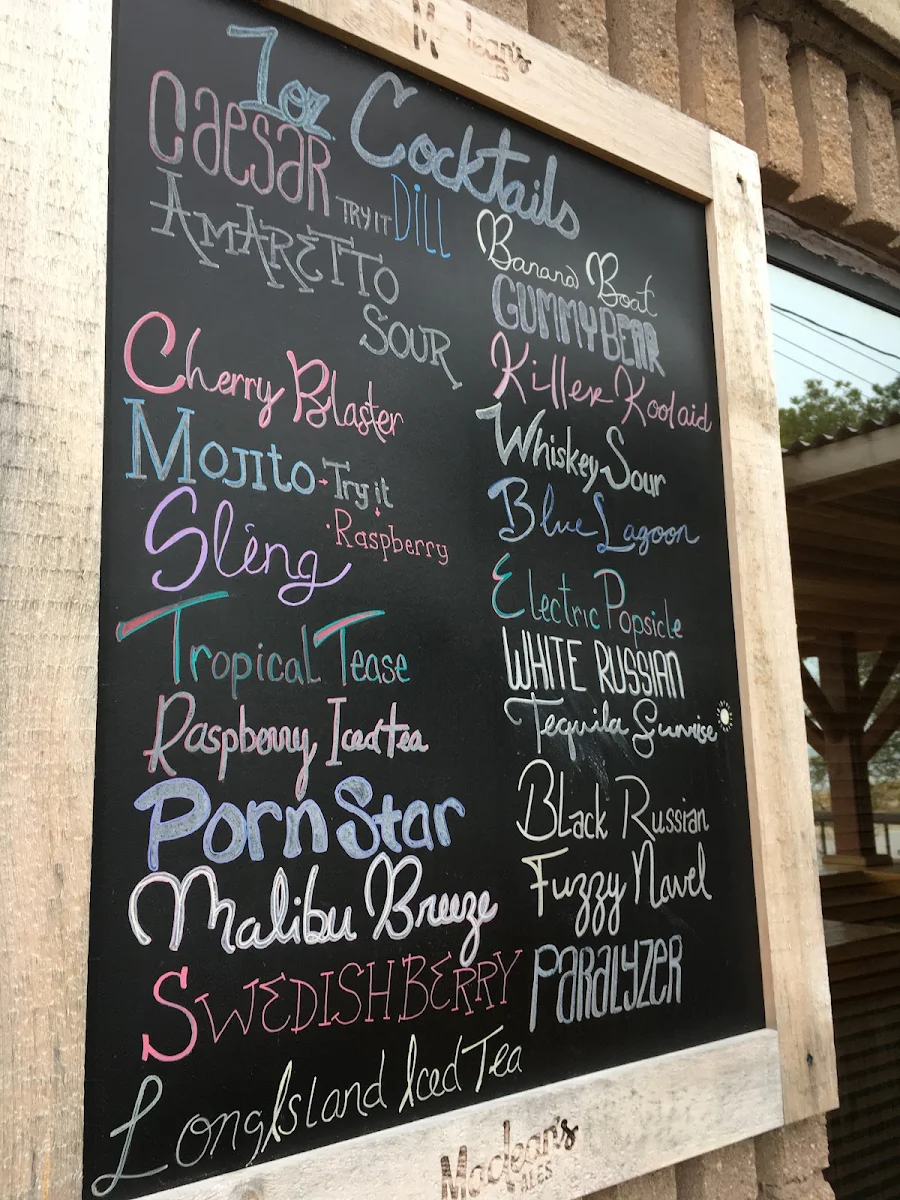 Maclean's
ALES
1oz Cocktails
CAESAR TRY IT DILL
AMARETTO
SOUR
Cherry Blaster
MOJITO - Try it
· Raspberry
Sling
Tropical Tease
Raspberry Iced tea
Porn Star
Malibu Breeze
SWEDISH BERRY
Long Island Iced Tea
Banana Boat
GUMMYBEAR
Killer Koolaid
Whiskey Sour
Blue Lagoon
Electric Popsicle
WHITE RUSSIAN
Tequila Sunrise
Black Russian
Fuzzy Navel
PARALYZER
Maclean's
ALES